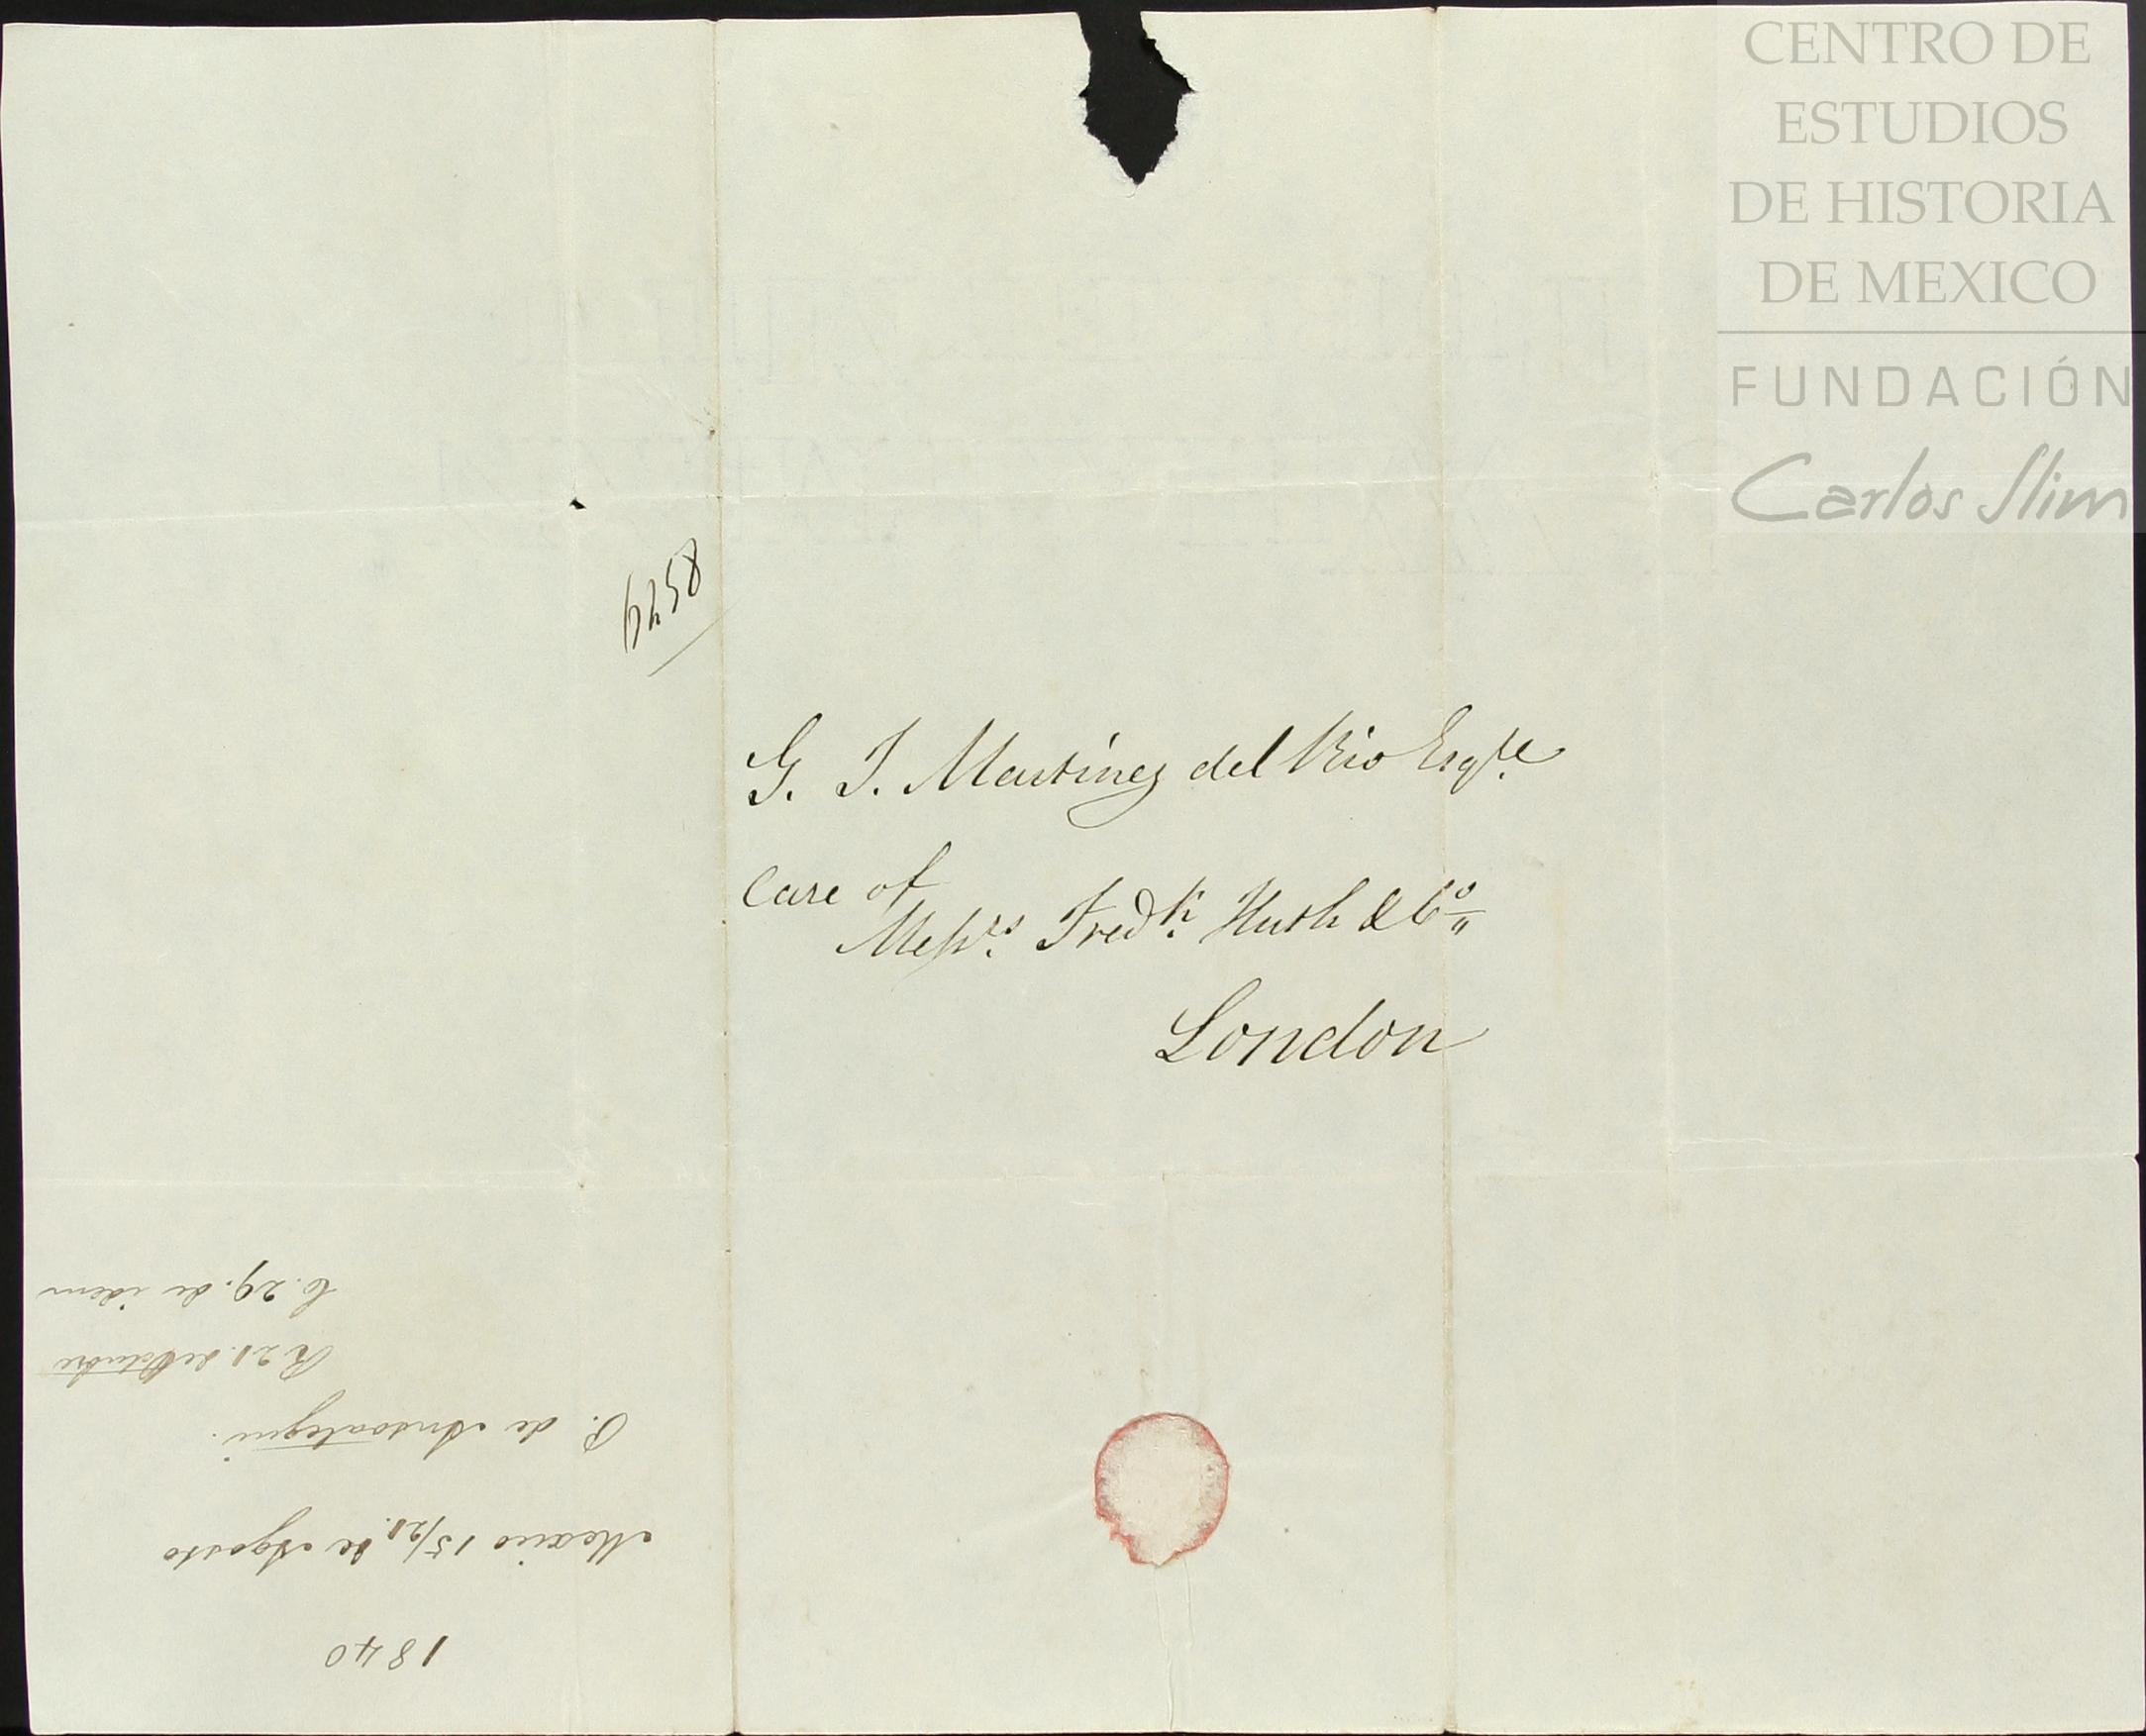 CENTRO DE
ESTUDIOS
DE HISTORIA
DE MEXICO
FUNDACIÓN
Carlos Slim
G. J. Martínez del Rio Esqre
Care of
Messrs Fredk Huth & Co
London
1840
Mexico 15/21 de Agosto
P. de Ansoategui.
R 21. de Octubre
C. 29. de idem